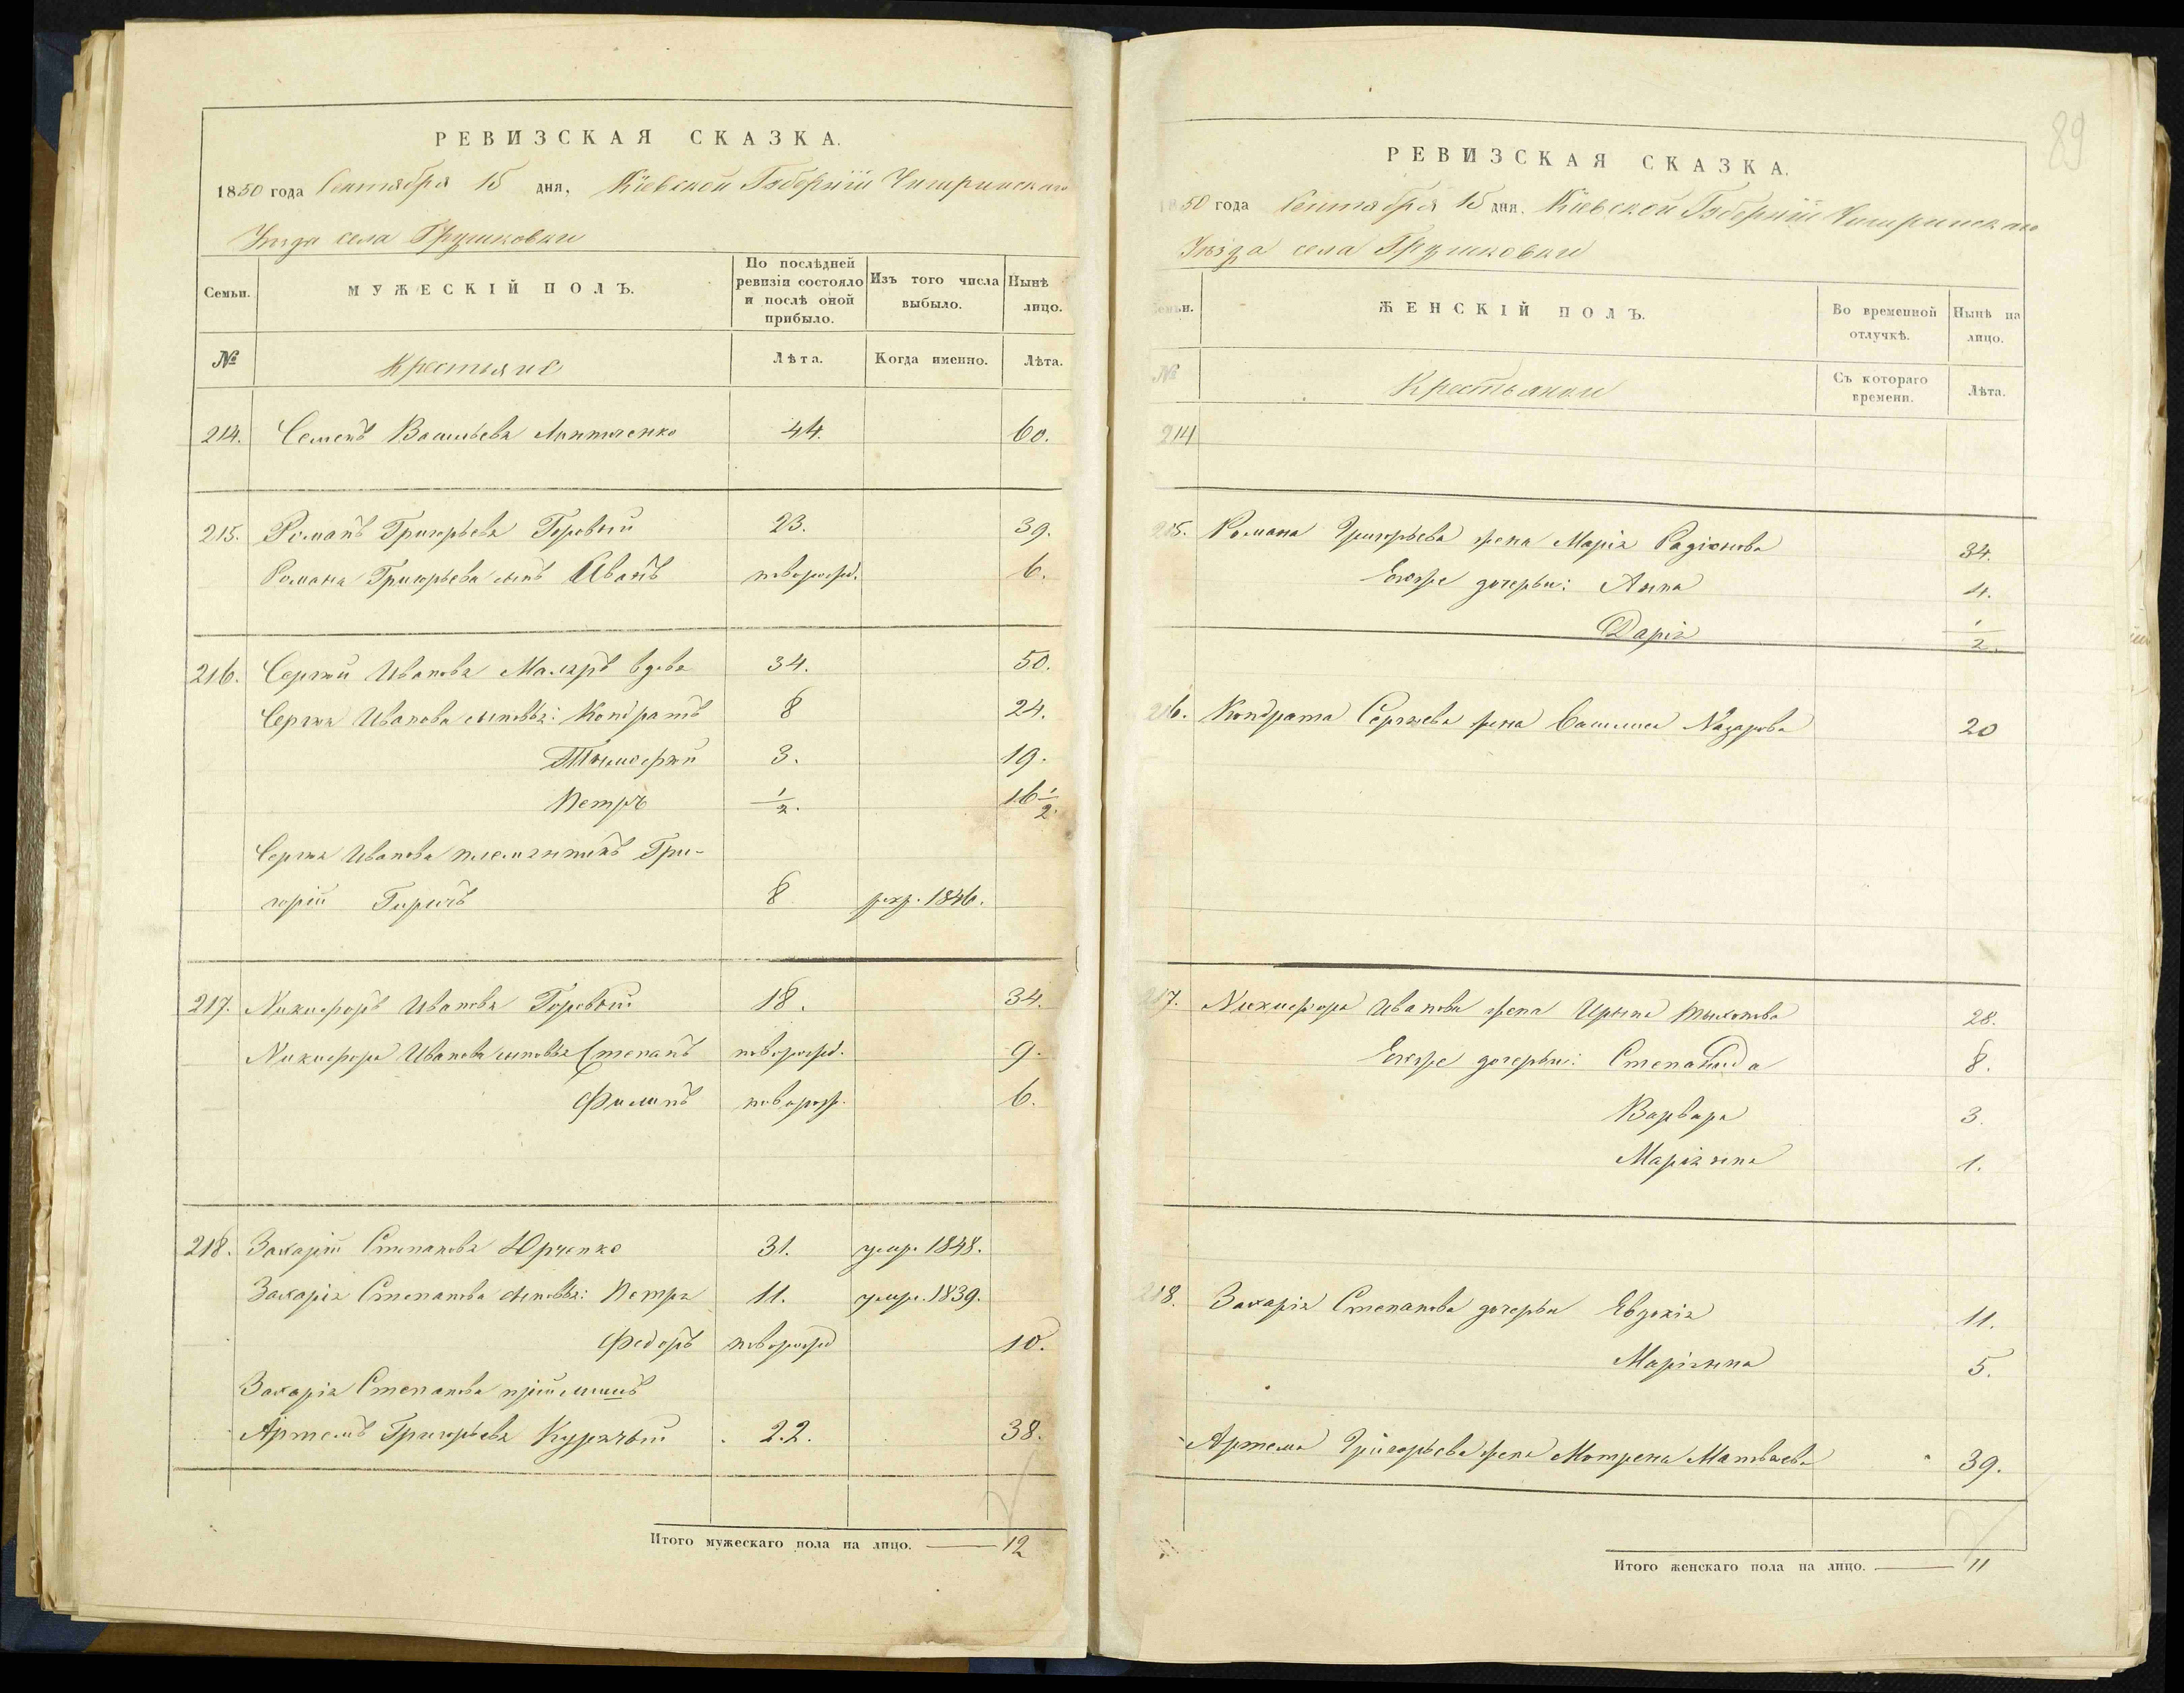 РЕВИЗСКАЯ СКАЗКА.
1850 года Сентября 15 дня, Кіевской Губерніи Чигринскаго
Уезда села Грушковки
Семьи. МУЖЕСКІЙ ПОЛЪ. По послѣдней ревизіи состояло и послѣ оной прибыло. Изъ того числа выбыло. Нынѣ лицо.
№ Крестьяне Лѣта. Когда именно. Лѣта.
214. Семенъ Васильевъ 44. 60.
215. Романъ Григорьевъ Горовый 23. 39.
Романа Григорьева сынъ Иванъ новорожд. 6.
216. Сергій Ивановъ Маляръ вдовъ 34. 50.
Сергія Иванова сыновья: Кондратъ 8 24.
Тимофій 3. 19.
Петръ 1/2. 16 1/2.
Сергія Иванова племянникъ Гри-
горій 8 рекр. 1846.
217. Никифоръ Ивановъ Горовый 18. 34.
Никифора Иванова сыновья Степанъ новорожд. 9.
Филипъ новорож. 6.
218. Захарій Степановъ Юрченко 31. умр. 1848.
Захарія Степанова сыновья: Петръ 11. умре. 1839.
Федоръ новорожд 10.
Захарія Степанова пріймышъ
Артемъ Григорьевъ 22. 38.
Итого мужескаго пола на лицо. 12
89
РЕВИЗСКАЯ СКАЗКА.
1850 года Сентября 15 дня. Кіевской Губерніи Чигринскаго
Уѣзда села Грушковки
Семьи. ЖЕНСКІЙ ПОЛЪ. Во временной отлучкѣ. Нынѣ на лицо.
№ Крестьянки Съ котораго времени. Лѣта.
214
215. Романа Григорьева жена Марія Радіонова 34.
Егоже дочерьи: Анна 4.
Дарія 1/2.
216. Кондрата Сергіева жена Василиса Назарова 20
217. Никифора Иванова жена Ирына Тыхонова 28.
Егоже дочерьи: Степанида 8.
Варвара 3.
Маріянна 1.
218. Захарія Степанова дочерьи Евдокія 11.
Маріянна 5.
Артема Григорьева жена Мотрена Матвѣева 39.
Итого женскаго пола на лицо. 11